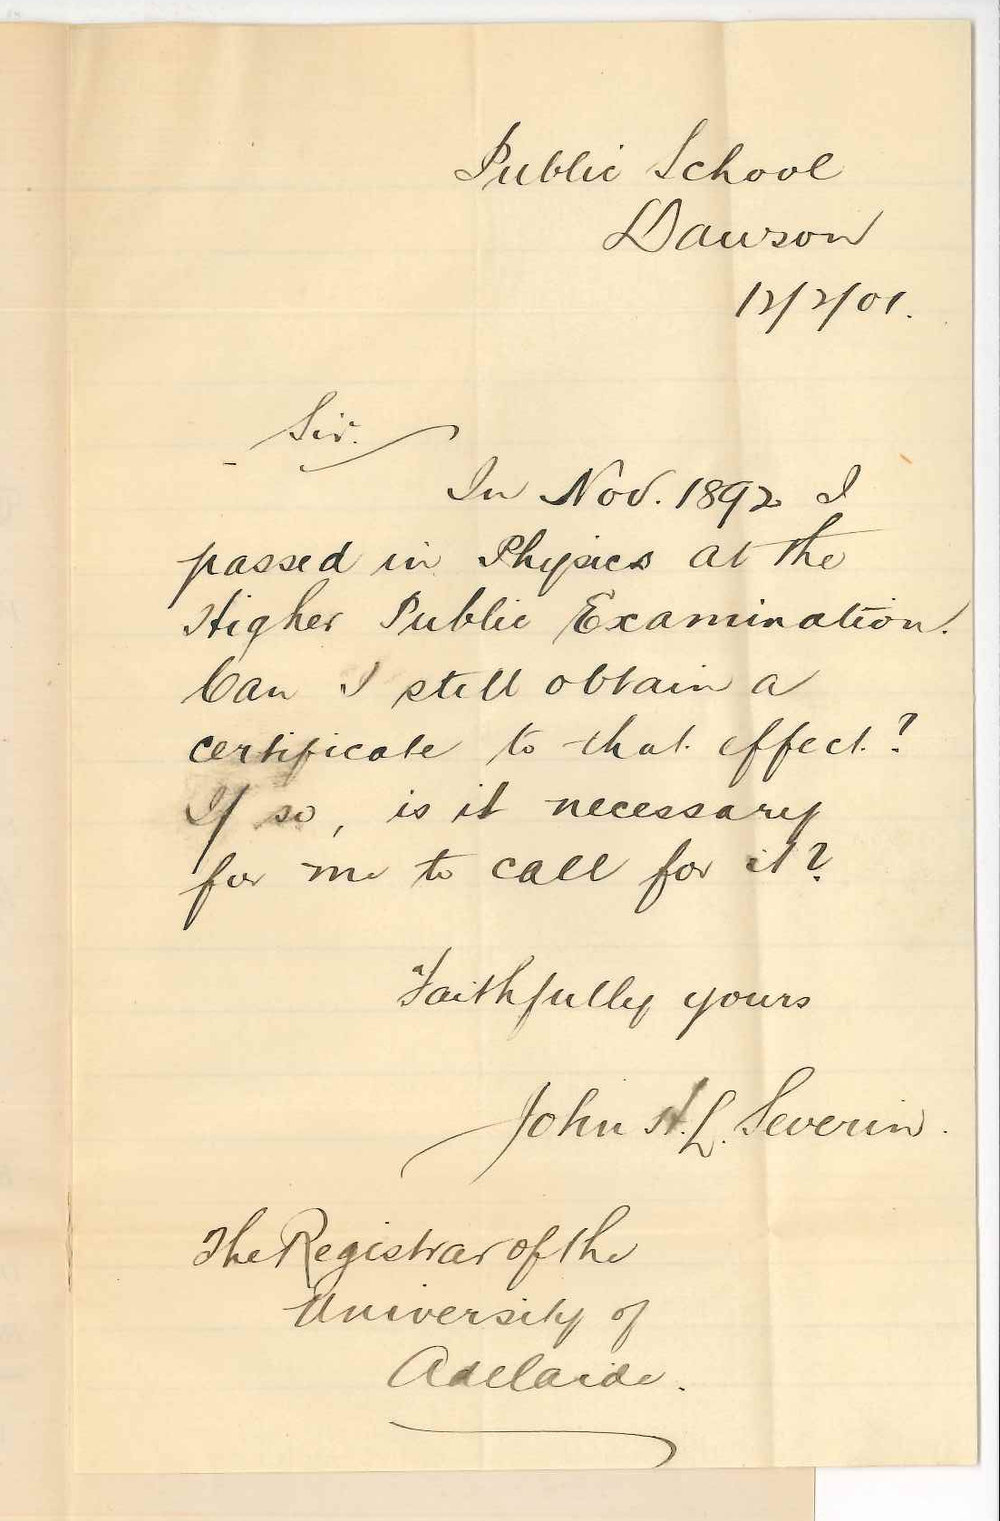 Public School
Dawson
12/2/01.
Sir.
In Nov. 1892 I
passed in Physics at the
Higher Public Examination.
Can I still obtain a
certificate to that effect?
If so, is it necessary
for me to call for it?
Faithfully yours
John H. L. Severin.
The Registrar of the
University of
Adelaide.